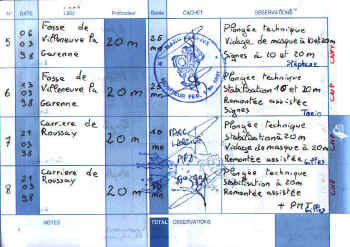 N° DATE LIEU Profondeur Durée CACHET OBSERVATIONS
5 06 03 98 Fosse de Villeneuve La Garenne 20 m 25 mn
Plongée technique
Vidage de masque à 10 et 20m
Signes à 10 et 20 m
Stéphane
6 03 98 Fosse de Villeneuve La Garenne 20 m 25
Plongée technique
Stabilisation 15 et 20 m
Remontée assistée
Signes
7 21 03 98 Carrière de Roussay 20 m mn
Plongée technique
Stabilisation à 20m
Vidage de masque à 20m
Remontée assistée Gilles
8 21 03 98 Carrière de Roussay 20 m 30 mn
Plongée technique
Stabilisation à 20m
Remontée assistée
+ PMT Gilles
NOTES TOTAL OBSERVATIONS